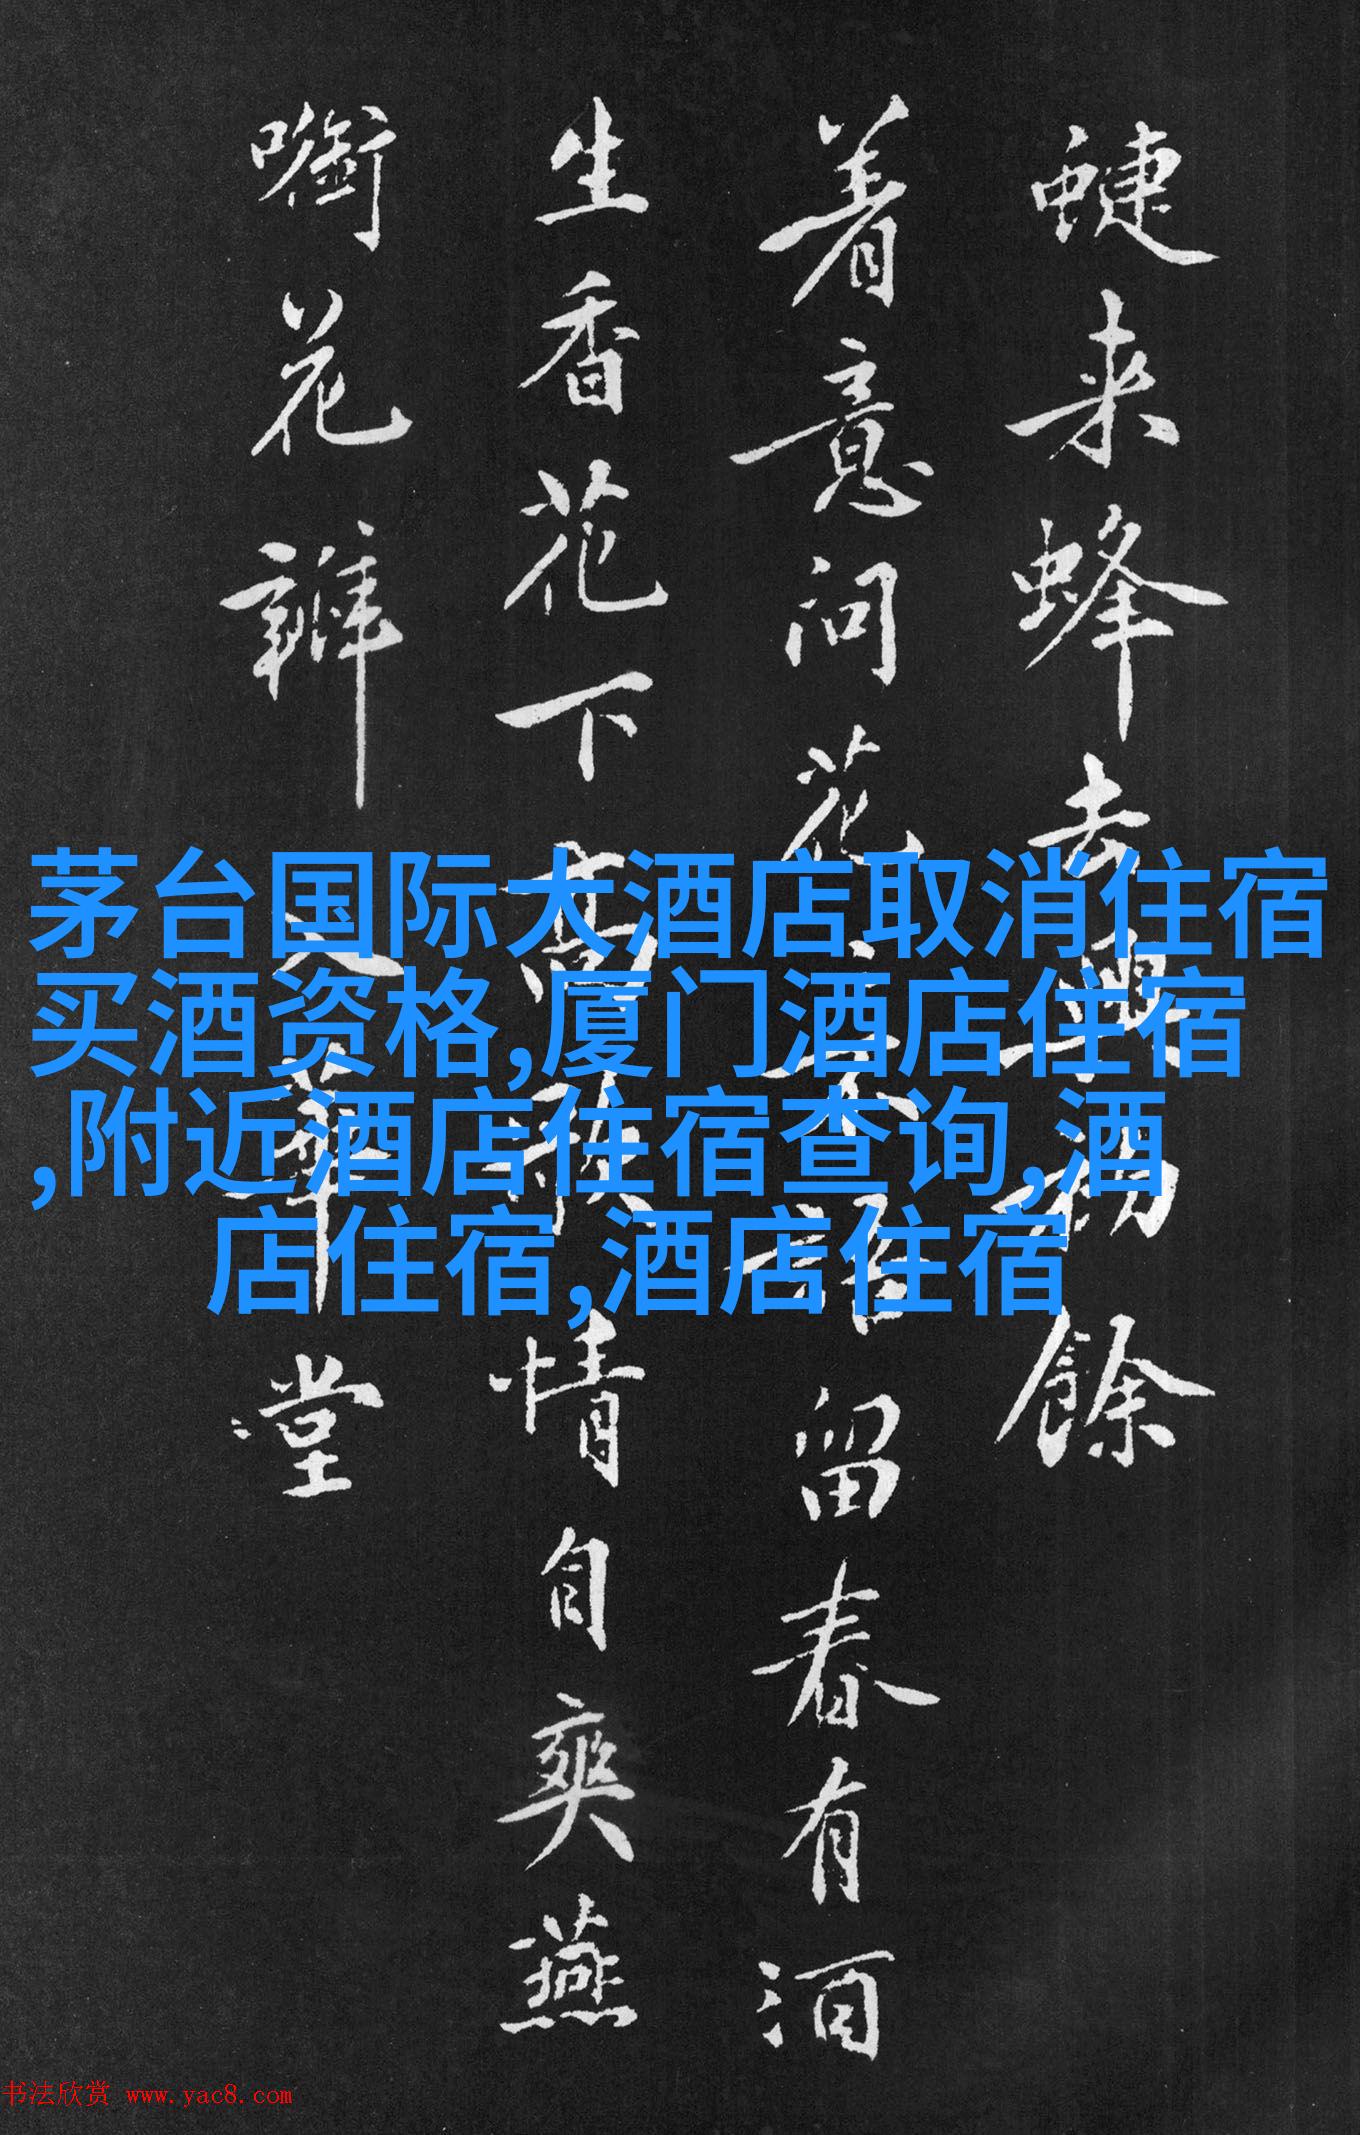 蜨来蜂去興初餘
着意问花花不語留春有酒
生香花下高歌情自爽燕
啣花瓣入華堂
茅台国际大酒店取消住宿
买酒资格,厦门酒店住宿
,附近酒店住宿查询,酒
店住宿,酒店住宿
书法欣赏 www.yac8.com